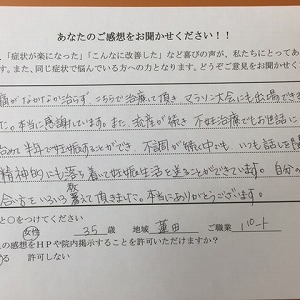 あなたのご感想をお聞かせください！！
、「症状が楽になった」「こんなに改善した」など喜びの声が、私たちにとってあ
す。また、同じ症状で悩んでいる方への力となります。どうぞご意見をお聞かせくださ
痛がなかなか治らず こちらで治療して頂き マラソン大会にも出場できる
た。本当に感謝しています。また、流産が続き 不妊治療でもお世話に
始めて 半年で妊娠することができ 不調が続く中も いつも話しを
精神的にも落ち着いて妊娠生活を送ることができています。自分の
合い方をいろいろ教えて頂きました。本当にありがとうございます。
と○をつけてください
女性 35 歳 地域 蓮田 ご職業 パート
の感想をHPや院内掲示することを許可いただけますか？
る 許可しない